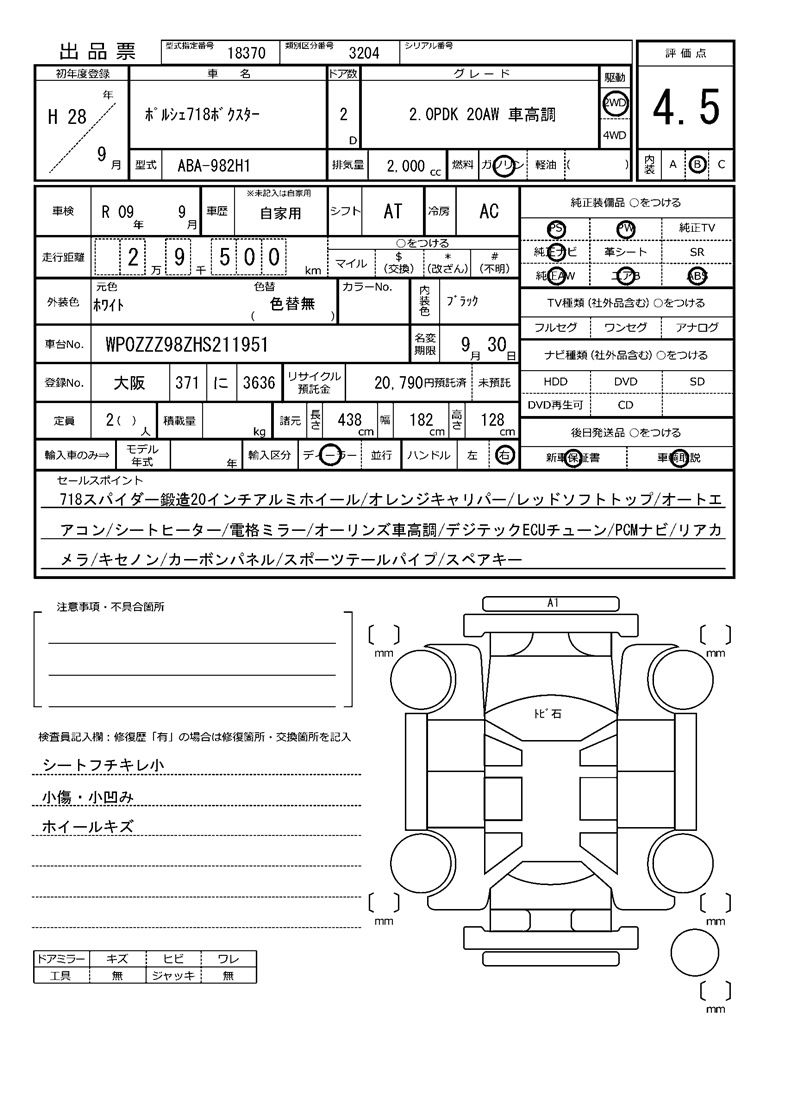 出品票 型式指定番号 18370 類別区分番号 3204 シリアル番号
評価点
初年度登録 車名 ドア数 グレード 駆動
H 28 年 9 月
ﾎﾟﾙｼｪ718ﾎﾞｸｽﾀｰ
2 D
2.0PDK 20AW 車高調
2WD
4WD
4.5
型式 ABA-982H1 排気量 2.000 cc 燃料 ガソリン 軽油 ( )
内装 A B C
車検 R 09 年 9 月 車歴 ※未記入は自家用 自家用 シフト AT 冷房 AC
純正装備品 ○をつける
PS PW 純正TV
純正ナビ 革シート SR
純正AW エアB ABS
走行距離 2 万 9 千 5 0 0 km
○をつける
マイル $ (交換) * (改ざん) # (不明)
外装色 元色 ﾎﾜｲﾄ 色替 ( 色替無 ) カラーNo. 内装色 ﾌﾞﾗｯｸ
TV種類(社外品含む)○をつける
フルセグ ワンセグ アナログ
車台No. WP0ZZZ98ZHS211951 名変期限 9 月 30 日
ナビ種類(社外品含む)○をつける
HDD DVD SD
DVD再生可 CD
登録No. 大阪 371 に 3636 リサイクル預託金 20,790 円預託済 未預託
定員 2 ( ) 人 積載量 kg 諸元 長さ 438 cm 幅 182 cm 高さ 128 cm
後日発送品 ○をつける
新車保証書 車輌取説
輸入車のみ⇒ モデル年式 年 輸入区分 ディーラー 並行 ハンドル 左 右
セールスポイント
718スパイダー鍛造20インチアルミホイール/オレンジキャリパー/レッドソフトトップ/オートエ
アコン/シートヒーター/電格ミラー/オーリンズ車高調/デジテックECUチューン/PCMナビ/リアカ
メラ/キセノン/カーボンパネル/スポーツテールパイプ/スペアキー
注意事項・不具合箇所
A1
mm
mm
ﾄﾋﾞ石
検査員記入欄：修復歴「有」の場合は修復箇所・交換箇所を記入
シートフチキレ小
小傷・小凹み
ホイールキズ
mm
mm
ドアミラー キズ ヒビ ワレ
工具 無 ジャッキ 無
mm